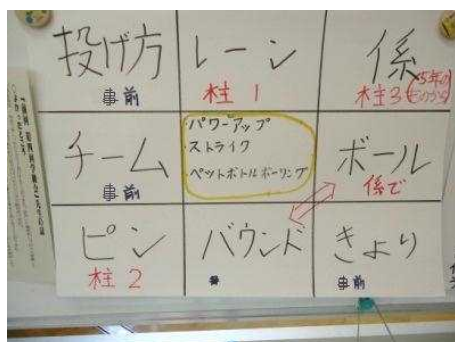 投げ方
事前
レーン
柱1
係
柱3
5年の
ものから
チーム
事前
・パワーアップ
ストライク
・ペットボトルボーリング
ボール
係で
ピン
柱2
バウンド
きょり
事前